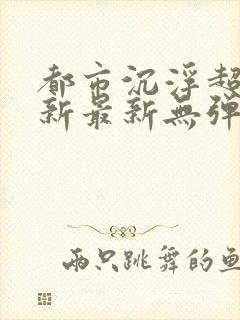 都市沉浮超
新最新無弹
两只跳舞的鱼